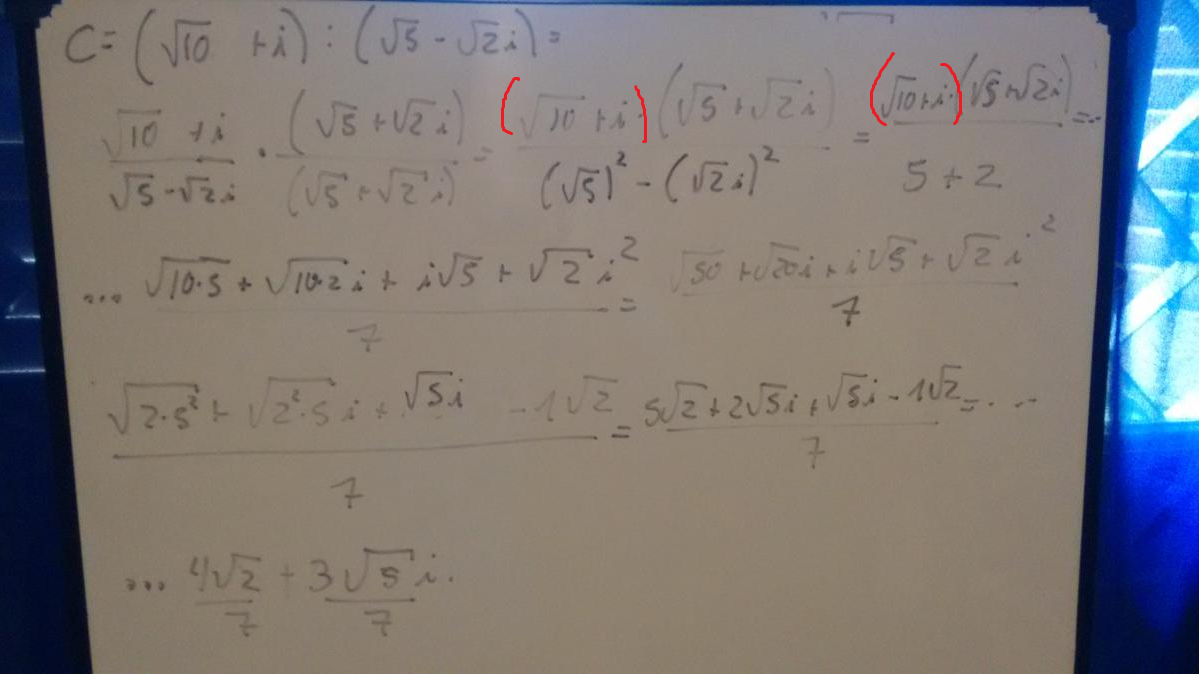 C = (√10 + i) : (√5 - √2 i) =
(√10 + i)/(√5 - √2 i) · (√5 + √2 i)/(√5 + √2 i) = (√10 + i)·(√5 + √2 i)/((√5)² - (√2 i)²) = (√10 + i·)(√5 + √2 i)/(5 + 2) = ..
... (√10·5 + √10·2 i + i√5 + √2 i²)/7 = (√50 + √20 i + i√5 + √2 i²)/7
(√2·5² + √2²·5 i + √5 i - 1√2)/7 = (5√2 + 2√5 i + √5 i - 1√2)/7 = ...
... 4√2/7 + 3√5/7 i.